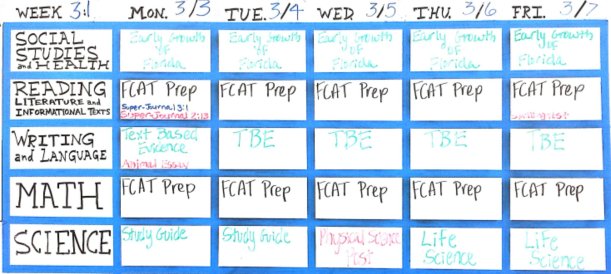 WEEK 3.1 MON. 3/3 TUE. 3/4 WED 3/5 THU. 3/6 FRI. 3/7
SOCIAL STUDIES and HEALTH
Early Growth of Florida
Early Growth of Florida
Early Growth of Florida
Early Growth of Florida
Early Growth of Florida
READING
LITERATURE and
INFORMATIONAL TEXTS
FCAT Prep
Super-Journal 3:1
Super-Journal 2:13
FCAT Prep
FCAT Prep
FCAT Prep
FCAT Prep
WRITING
and LANGUAGE
Text Based
Evidence
Animal Essay
TBE
TBE
TBE
TBE
MATH
FCAT Prep
FCAT Prep
FCAT Prep
FCAT Prep
FCAT Prep
SCIENCE
Study Guide
Study Guide
Physical Science
Test
Life
Science
Life
Science